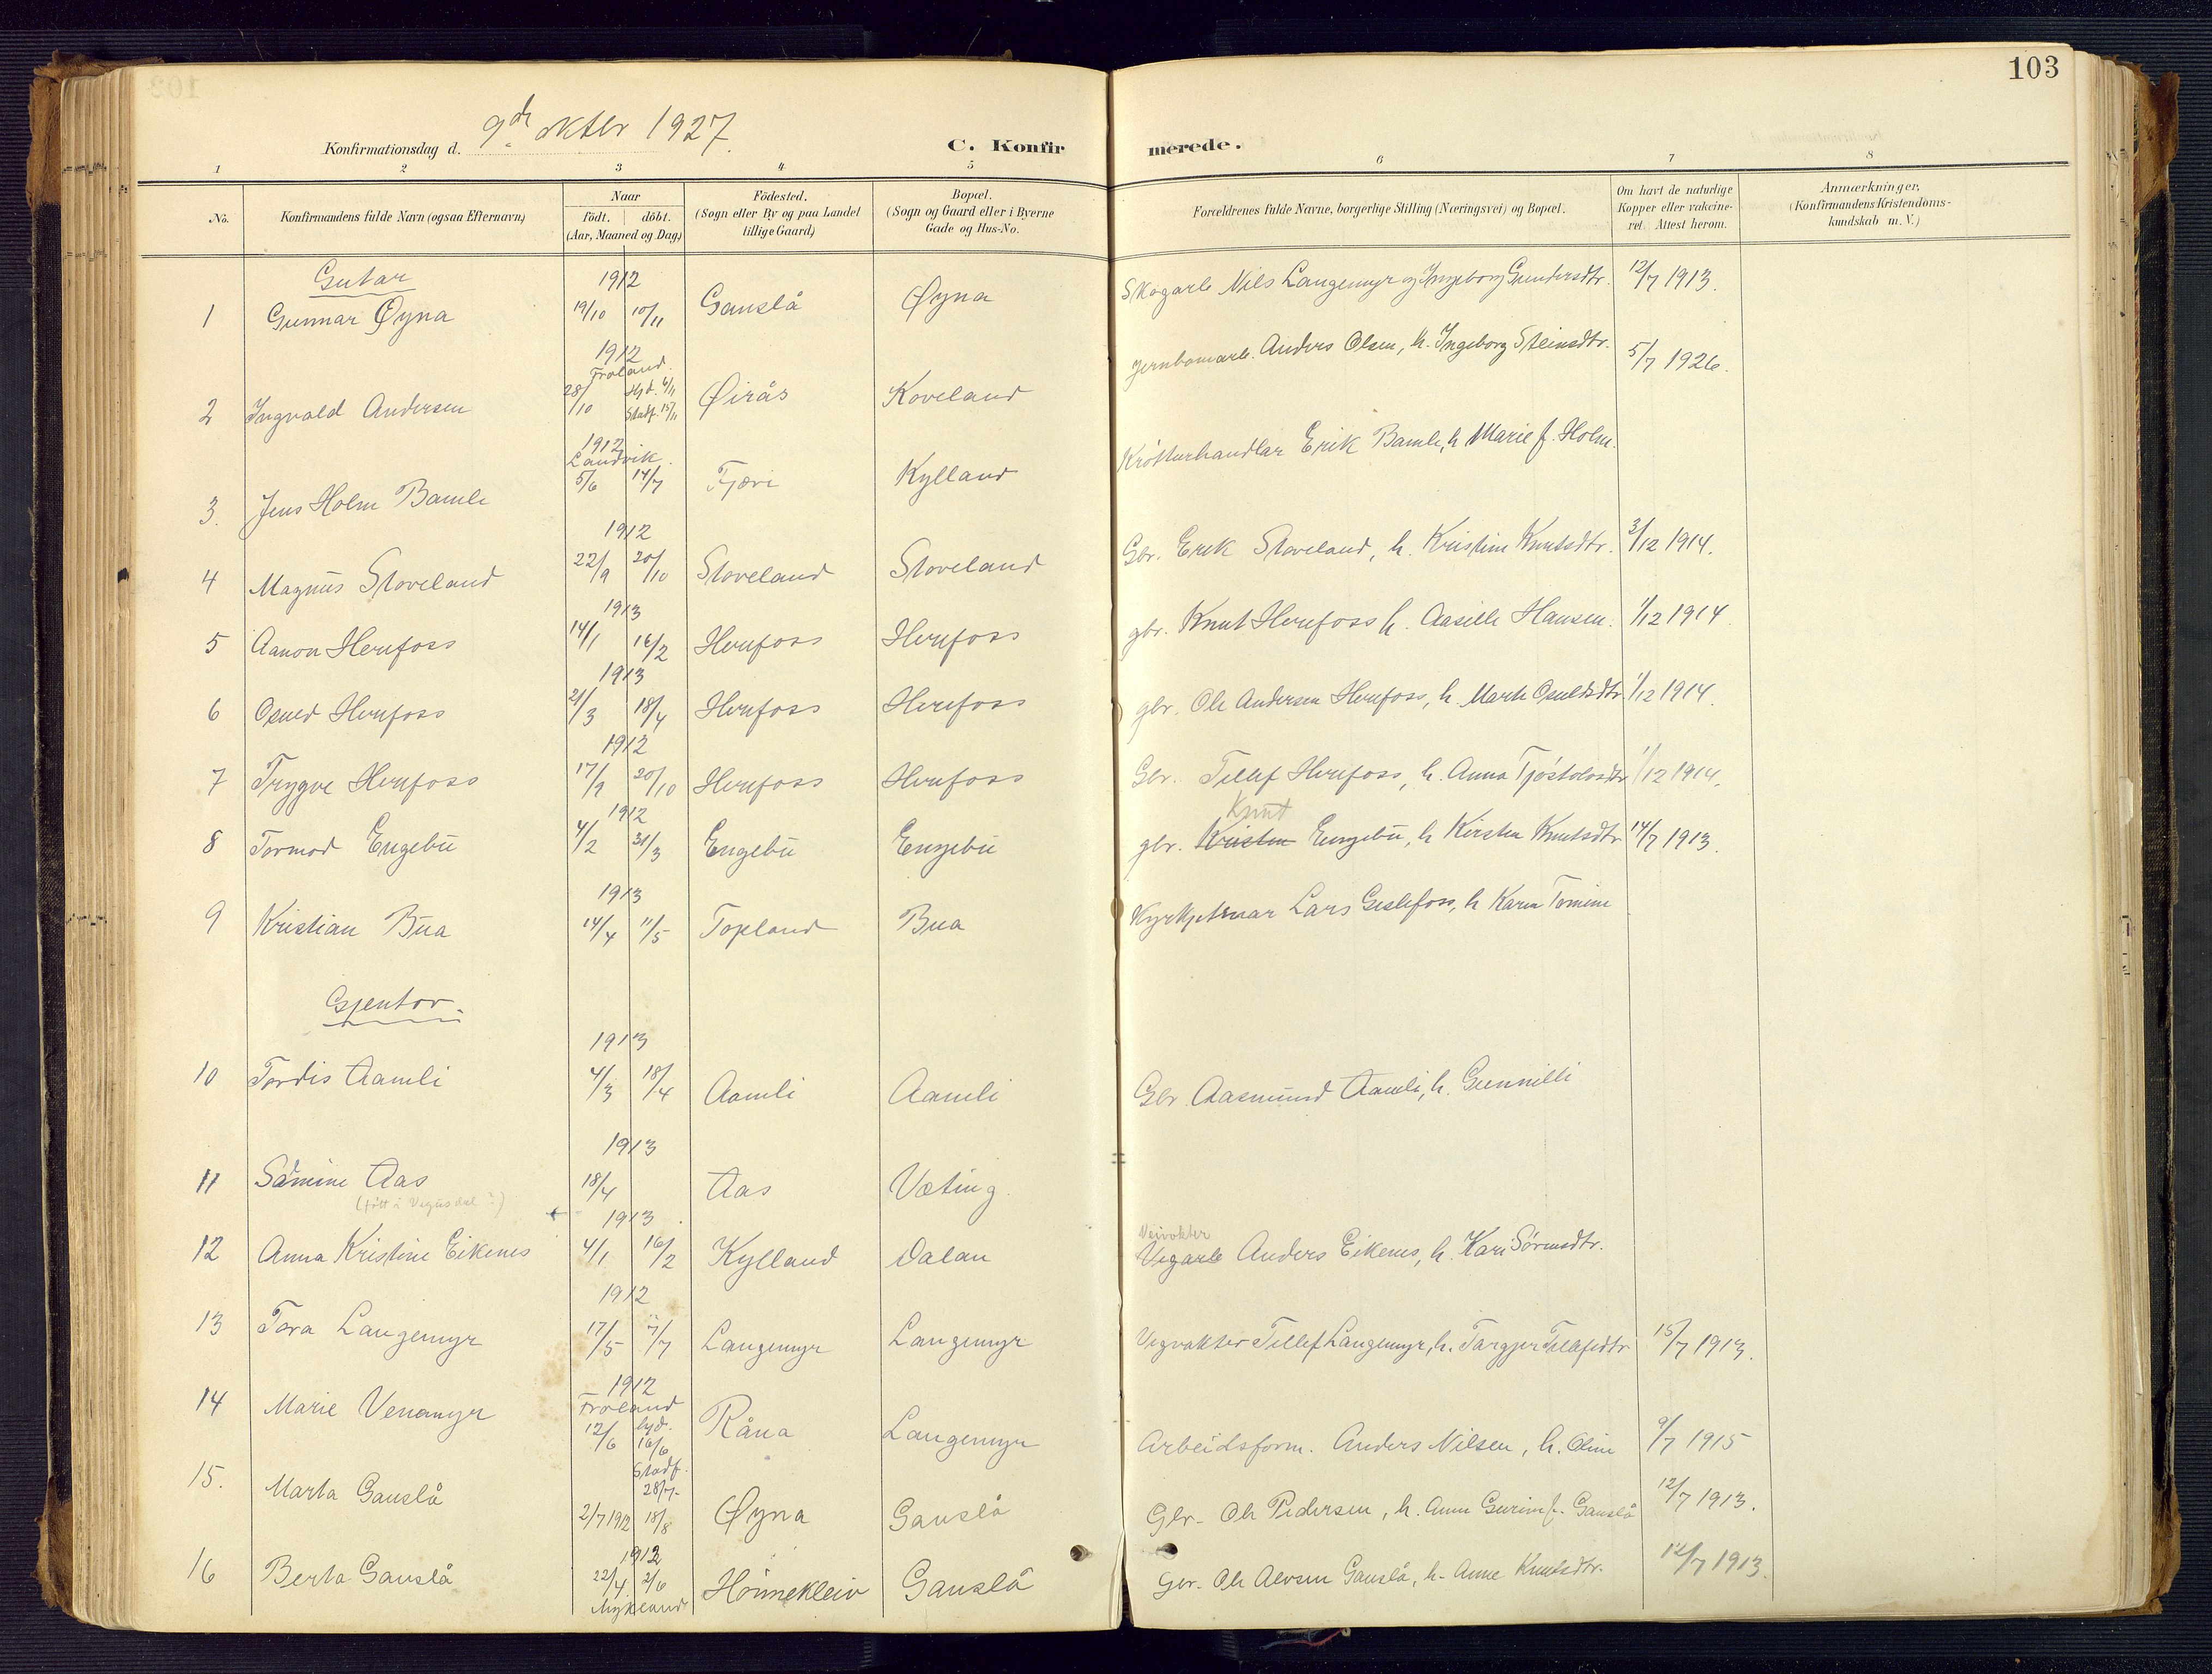 103
Konfirmationsdag d. 9de okter 1927.
C. Konfirmerede.
1 2 3 4 5 6 7 8
No.
Konfirmandens fulde Navn (ogsaa Efternavn)
Naar
födt. döbt.
(Aar, Maaned og Dag)
Födested.
(Sogn eller By og paa Landet
tillige Gaard)
Bopæl.
(Sogn og Gaard eller i Byerne
Gade og Hus-No.
Forældrenes fulde Navne, borgerlige Stilling (Næringsvei) og Bopæl.
Om havt de naturlige
Kopper eller vakcine-
ret. Attest herom.
Anmærkninger.
(Konfirmandens Kristendoms-
kundskab m. V.)
Gutar
1 Gunnar Øyna 1912 19/10 10/11 Gauslå Øyna Skogarb Nils Langemyr og Ingeborg Gundersdtr. 12/7 1913.
2 Ingvald Andersen 1912 Froland. 28/10 Hjd. 4/11 Stadf. 15/11 Øirås Koveland Jernbanearb. Anders Olsen, h. Ingeborg Steinsdtr. 5/7 1926.
3. Jens Holm Bamle 1912 Landvik. 5/6 14/7 Fjæri Kylland Krøtturhandlar Erik Bamle, h Marie f. Holm.
4 Magnus Stoveland 1912 22/9 20/10 Stoveland Stoveland Gbr. Erik Stoveland, h. Kristine Knutsdtr. 3/12 1914.
5 Aanon Herefoss 1913 14/1 16/2 Herefoss Herefoss gbr. Knut Herefoss h. Aasille Hansen. 1/12 1914
6 Osuld Herefoss 1913 21/3 18/4 Herefoss Herefoss gbr. Ole Andersen Herefoss, h. Marte Osuldsdtr 1/12 1914.
7 Trygve Herefoss 1912 17/9 20/10 Herefoss Herefoss Gbr. Tellef Herefoss, h. Anna Tjøstolvsdtr 1/12 1914.
8 Tormod Engebu 1912 4/2 31/3 Engebu Engebu gbr. Kristen Knut Engebu, h Kirsten Knutsdtr 14/7 1913.
9 Kristian Bua 1913 14/4 11/5 Topland Bua Kyrkjetenar Lars Geslefoss, h Karen Tomine
Gjentor.
10 Tordis Aamli 1913 4/3 18/4 Aamli Aamli Gbr Aasmund Aamli, h. Gunnilli
11 Samine Aas 1913 18/4 Aas Væting.
(født i Vegusdal?)
12 Anna Kristine Eikenes 1913 4/1 16/2 Kylland Dalan Veivokter Vegarb Anders Eikenes, h. Kari Sørensdtr.
13 Tora Langemyr 1912 17/5 7/7 Langemyr Langemyr Vegvakter Tellef Langemyr, h. Targjer Tellefsdtr 15/7 1913.
14 Marie Venemyr 1912 Froland 12/6 hjd. 16/6 Stadf. 28/7. Råna Langemyr Arbeidsform. Anders Nilsen, h. Oline 9/7 1915
15. Marta Gauslå 2/7 1912 18/8 Øyna Gauslå Gbr. Ole Pedersen, h. Anne Gurine f. Gauslå 12/7 1913.
16 Berta Gauslå 1912 22/4. 2/6 Mykland Hønnekleiv Gauslå Gbr. Ole Alvsen Gauslå, h. Anne Knutsdtr. 12/7 1913.